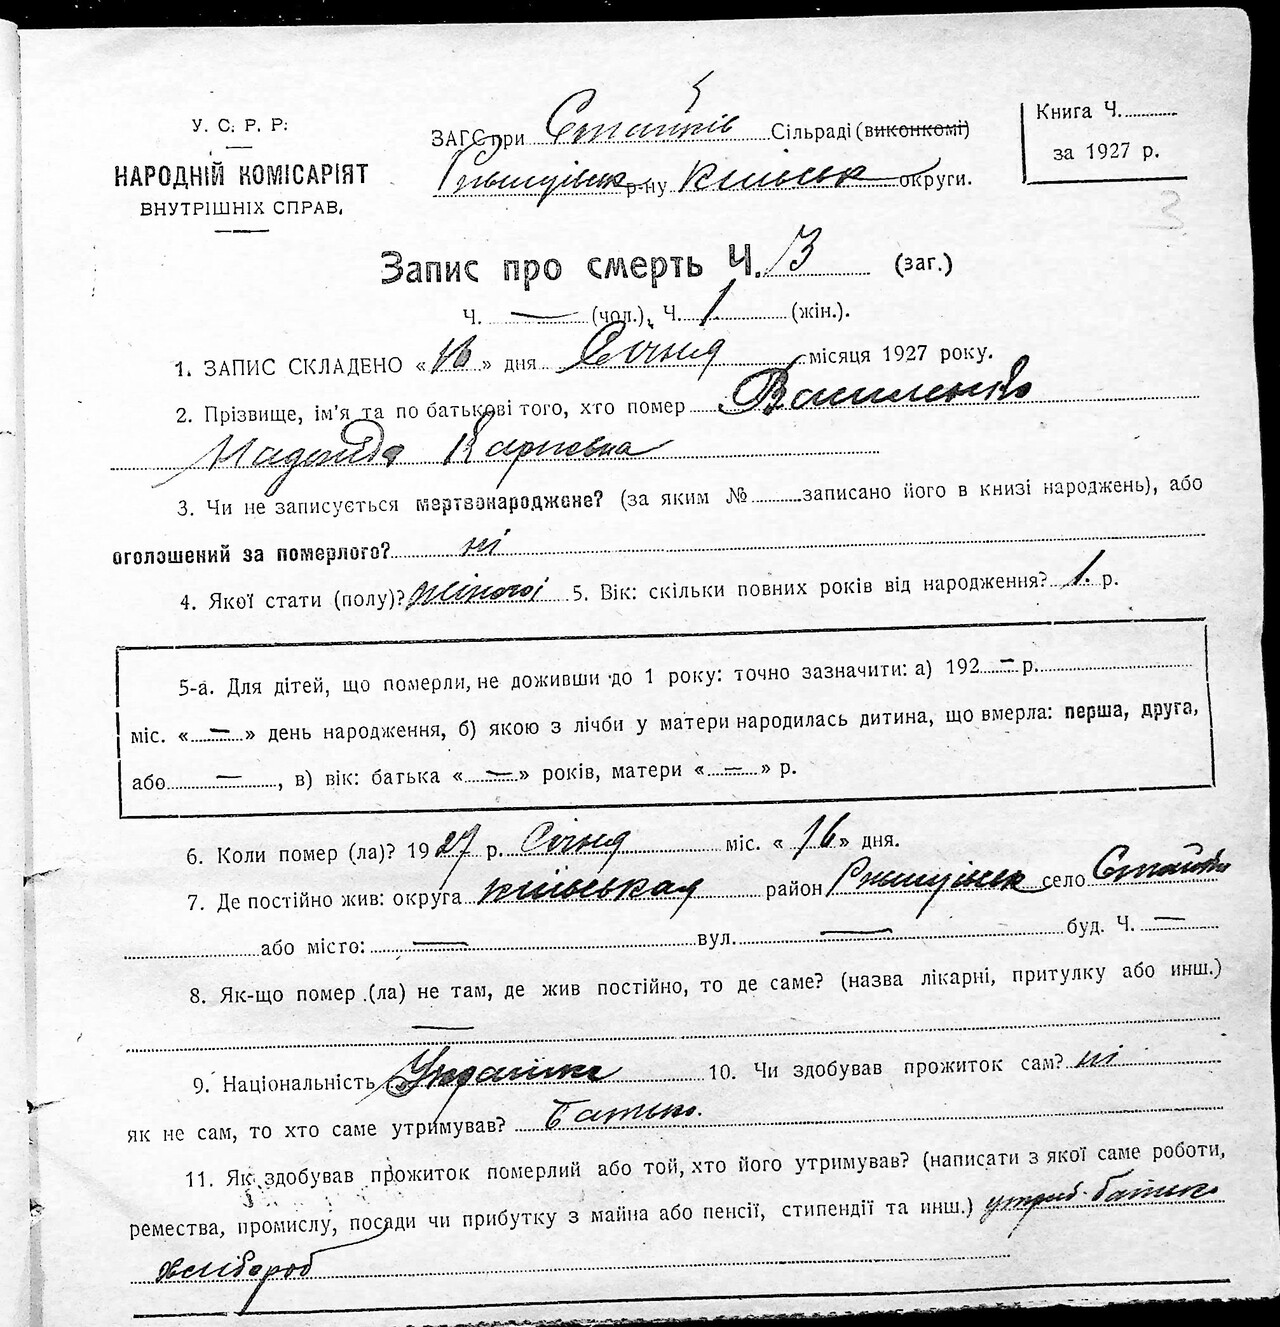 У. С. Р. Р.
НАРОДНІЙ КОМІСАРІЯТ
ВНУТРІШНІХ СПРАВ.
ЗАГС при Стайків Сільраді (виконкомі)
Ржищівськ р-ну Київськ округи.
Книга Ч.
за 1927 р.
3
Запис про смерть Ч. 3 (заг.)
Ч. — (чол.), Ч. 1 (жін.).
1. ЗАПИС СКЛАДЕНО «16» дня Січня місяця 1927 року.
2. Прізвище, ім'я та по батькові того, хто помер Василенко
Надежда Карповна
3. Чи не записується мертвонароджене? (за яким № записано його в книзі народжень), або
оголошений за померлого? ні
4. Якої стати (полу)? жіночої 5. Вік: скільки повних років від народження? 1 р.
5-а. Для дітей, що померли, не доживши до 1 року: точно зазначити: а) 192 — р.
міс. « — » день народження, б) якою з лічби у матери народилась дитина, що вмерла: перша, друга,
або — , в) вік: батька « — » років, матери « — » р.
6. Коли помер (ла)? 1927 р. Січня міс. «16» дня.
7. Де постійно жив: округа Київськая район Ржищівськ село Стайки
або місто: — вул. — буд. Ч. —
8. Як-що помер (ла) не там, де жив постійно, то де саме? (назва лікарні, притулку або инш.)
—
9. Національність Українка 10. Чи здобував прожиток сам? ні
як не сам, то хто саме утримував? Батько.
11. Як здобував прожиток померлий або той, хто його утримував? (написати з якої саме роботи,
ремества, промислу, посади чи прибутку з майна або пенсії, стипендії та инш.) утрим. батько
хлібороб